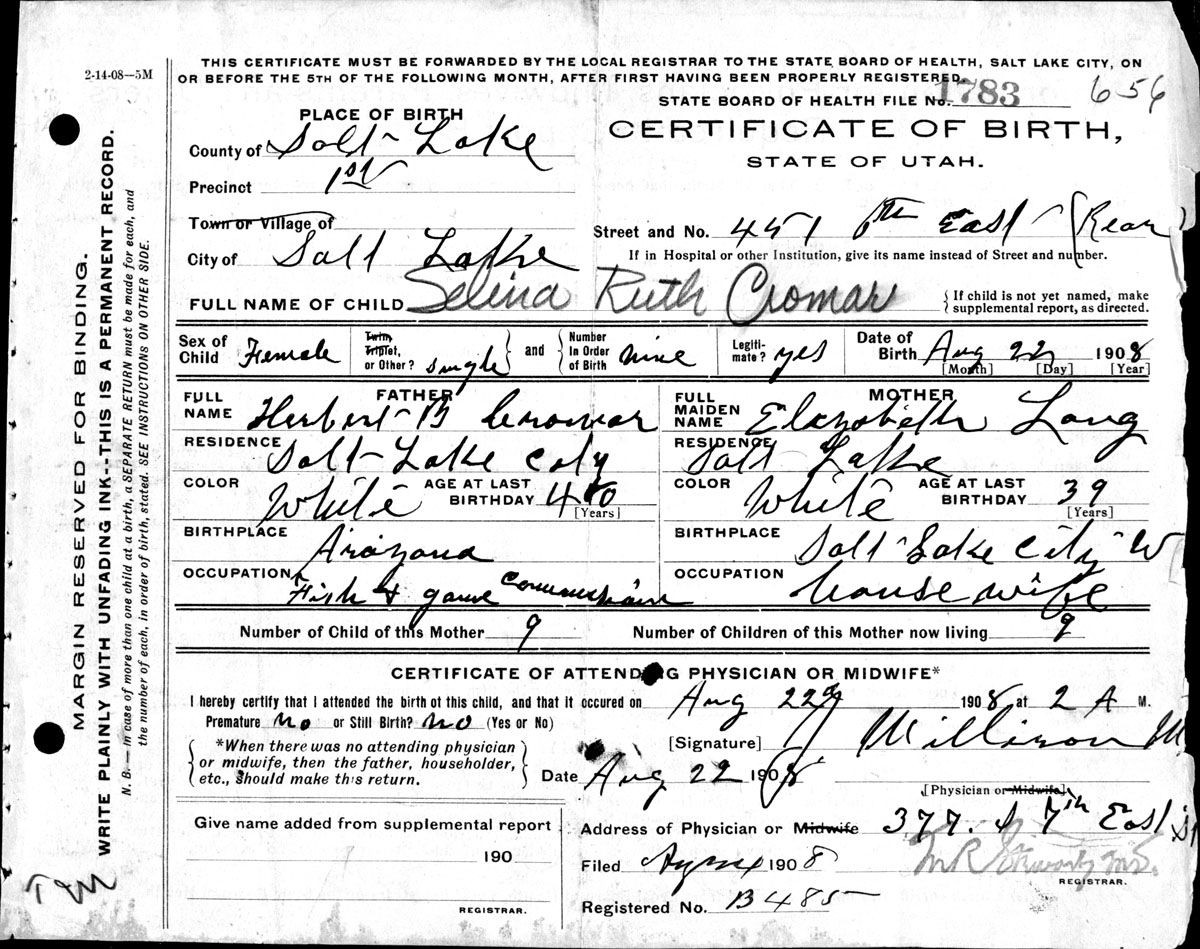 2-14-08—5M
THIS CERTIFICATE MUST BE FORWARDED BY THE LOCAL REGISTRAR TO THE STATE BOARD OF HEALTH, SALT LAKE CITY, ON
OR BEFORE THE 5TH OF THE FOLLOWING MONTH, AFTER FIRST HAVING BEEN PROPERLY REGISTERED.
STATE BOARD OF HEALTH FILE No. 1783 656
PLACE OF BIRTH
CERTIFICATE OF BIRTH,
STATE OF UTAH.
County of Salt Lake
Precinct 1st
Town or Village of
Street and No. 451 6th East (Rear)
City of Salt Lake
If in Hospital or other Institution, give its name instead of Street and number.
FULL NAME OF CHILD Selina Ruth Cromar
{If child is not yet named, make
supplemental report, as directed.
Sex of Child Female
Twin, Triplet, or Other? single
and
Number In Order of Birth nine
Legiti-mate? yes
Date of Birth Aug 22 1908
[Month] [Day] [Year]
FATHER
FULL NAME Herbert B Cromar
MOTHER
FULL MAIDEN NAME Elizabeth Lang
RESIDENCE Salt Lake City
RESIDENCE Salt Lake
COLOR White AGE AT LAST BIRTHDAY 40 [Years]
COLOR White AGE AT LAST BIRTHDAY 39 [Years]
BIRTHPLACE Arizona
BIRTHPLACE Salt Lake City
OCCUPATION Fish & game
OCCUPATION house wife
Number of Child of this Mother 9
Number of Children of this Mother now living 9
CERTIFICATE OF ATTENDING PHYSICIAN OR MIDWIFE*
I hereby certify that I attended the birth of this child, and that it occured on Aug 22d 1908 at 2 A M.
Premature no or Still Birth? no (Yes or No)
*When there was no attending physician
or midwife, then the father, householder,
etc., should make this return.
[Signature]
Date Aug 22 1908
[Physician or Midwife]
Give name added from supplemental report
190
REGISTRAR.
Address of Physician or Midwife 377. S 7th East St
Filed 1908
REGISTRAR.
Registered No. B485
MARGIN RESERVED FOR BINDING.
WRITE PLAINLY WITH UNFADING INK--THIS IS A PERMANENT RECORD.
N. B.—In case of more than one child at a birth, a SEPARATE RETURN must be made for each, and
the number of each, in order of birth, stated. SEE INSTRUCTIONS ON OTHER SIDE.